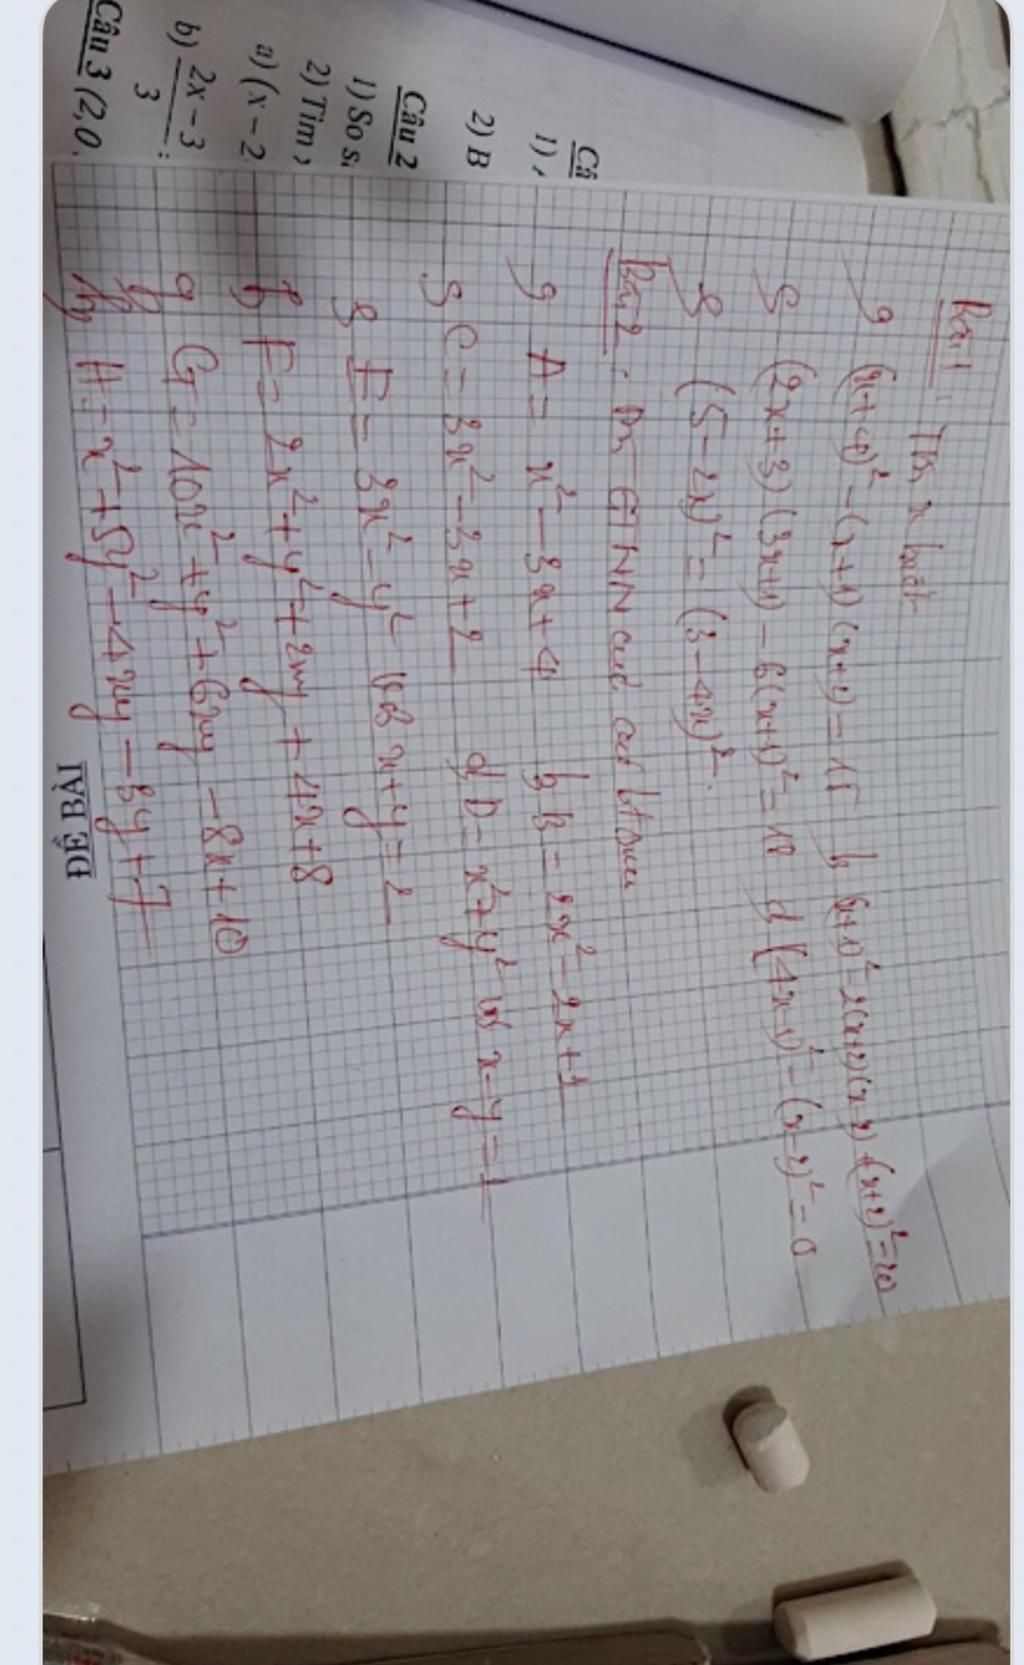 Bài 1: Tìm x biết
a, (x+4)² - (x+1)(x+2) = 15 b, (x+1)² - 2(x+2)(x-2) + (x+2)² = 20
c, (2x+3)(3x+1) - 6(x+1)² = 18 d, (4x-1)² - (x-2)² = 0
e, (5-2x)² = (3-4x)².
Bài 2: Tìm GTNN của các bt sau
a, A = x² - 3x + 4 b, B = 2x² - 2x + 1
c, C = 3x² - 3x + 2 d, D = x² + y² với x - y = 1
e, E = 3x² - y² với x + y = 2
f, F = 2x² + y² + 2xy + 4x + 8
g, G = 10x² + y² + 6xy - 8x + 10
h, H = x² + 5y² - 4xy - 8y + 7
ĐỀ BÀI
Câ
1)
2) B
Câu 2
1) So s
2) Tìm
a) (x - 2
b) 2x - 3
3
Câu 3 (2,0